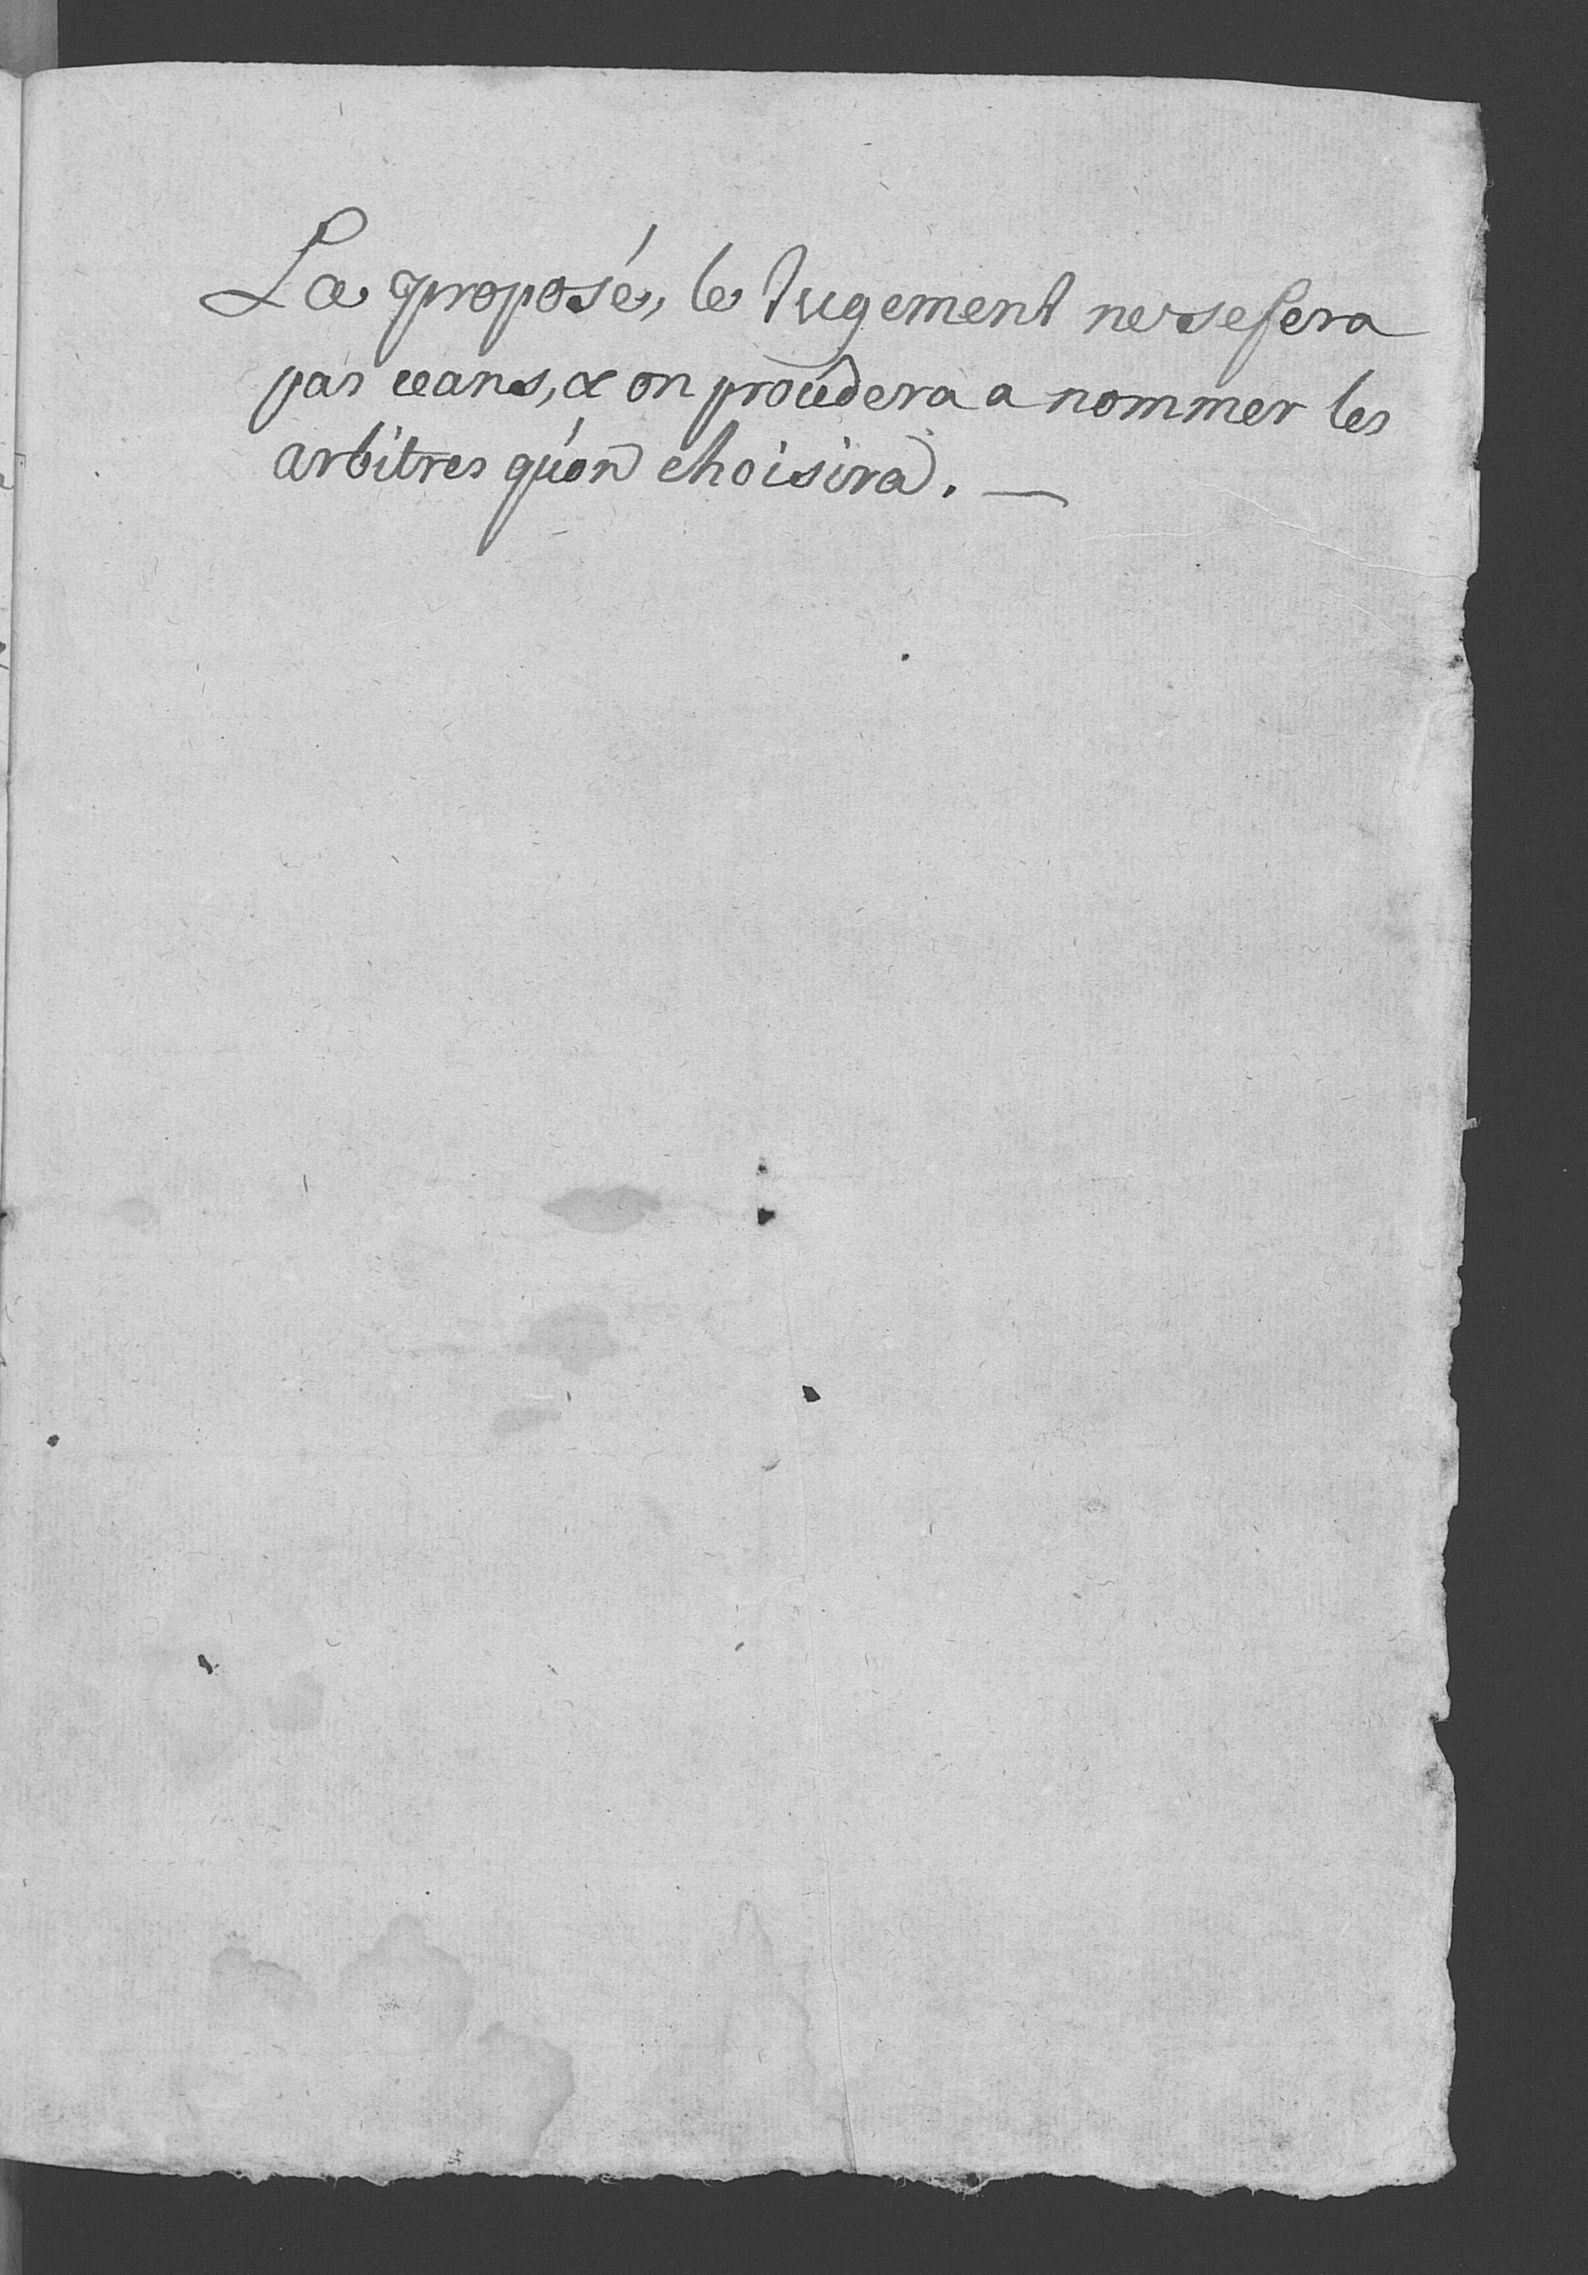 La proposé, le Jugement ne se fera
pas ceans, & on procedera a nommer les
arbitres qu'on choisira. —